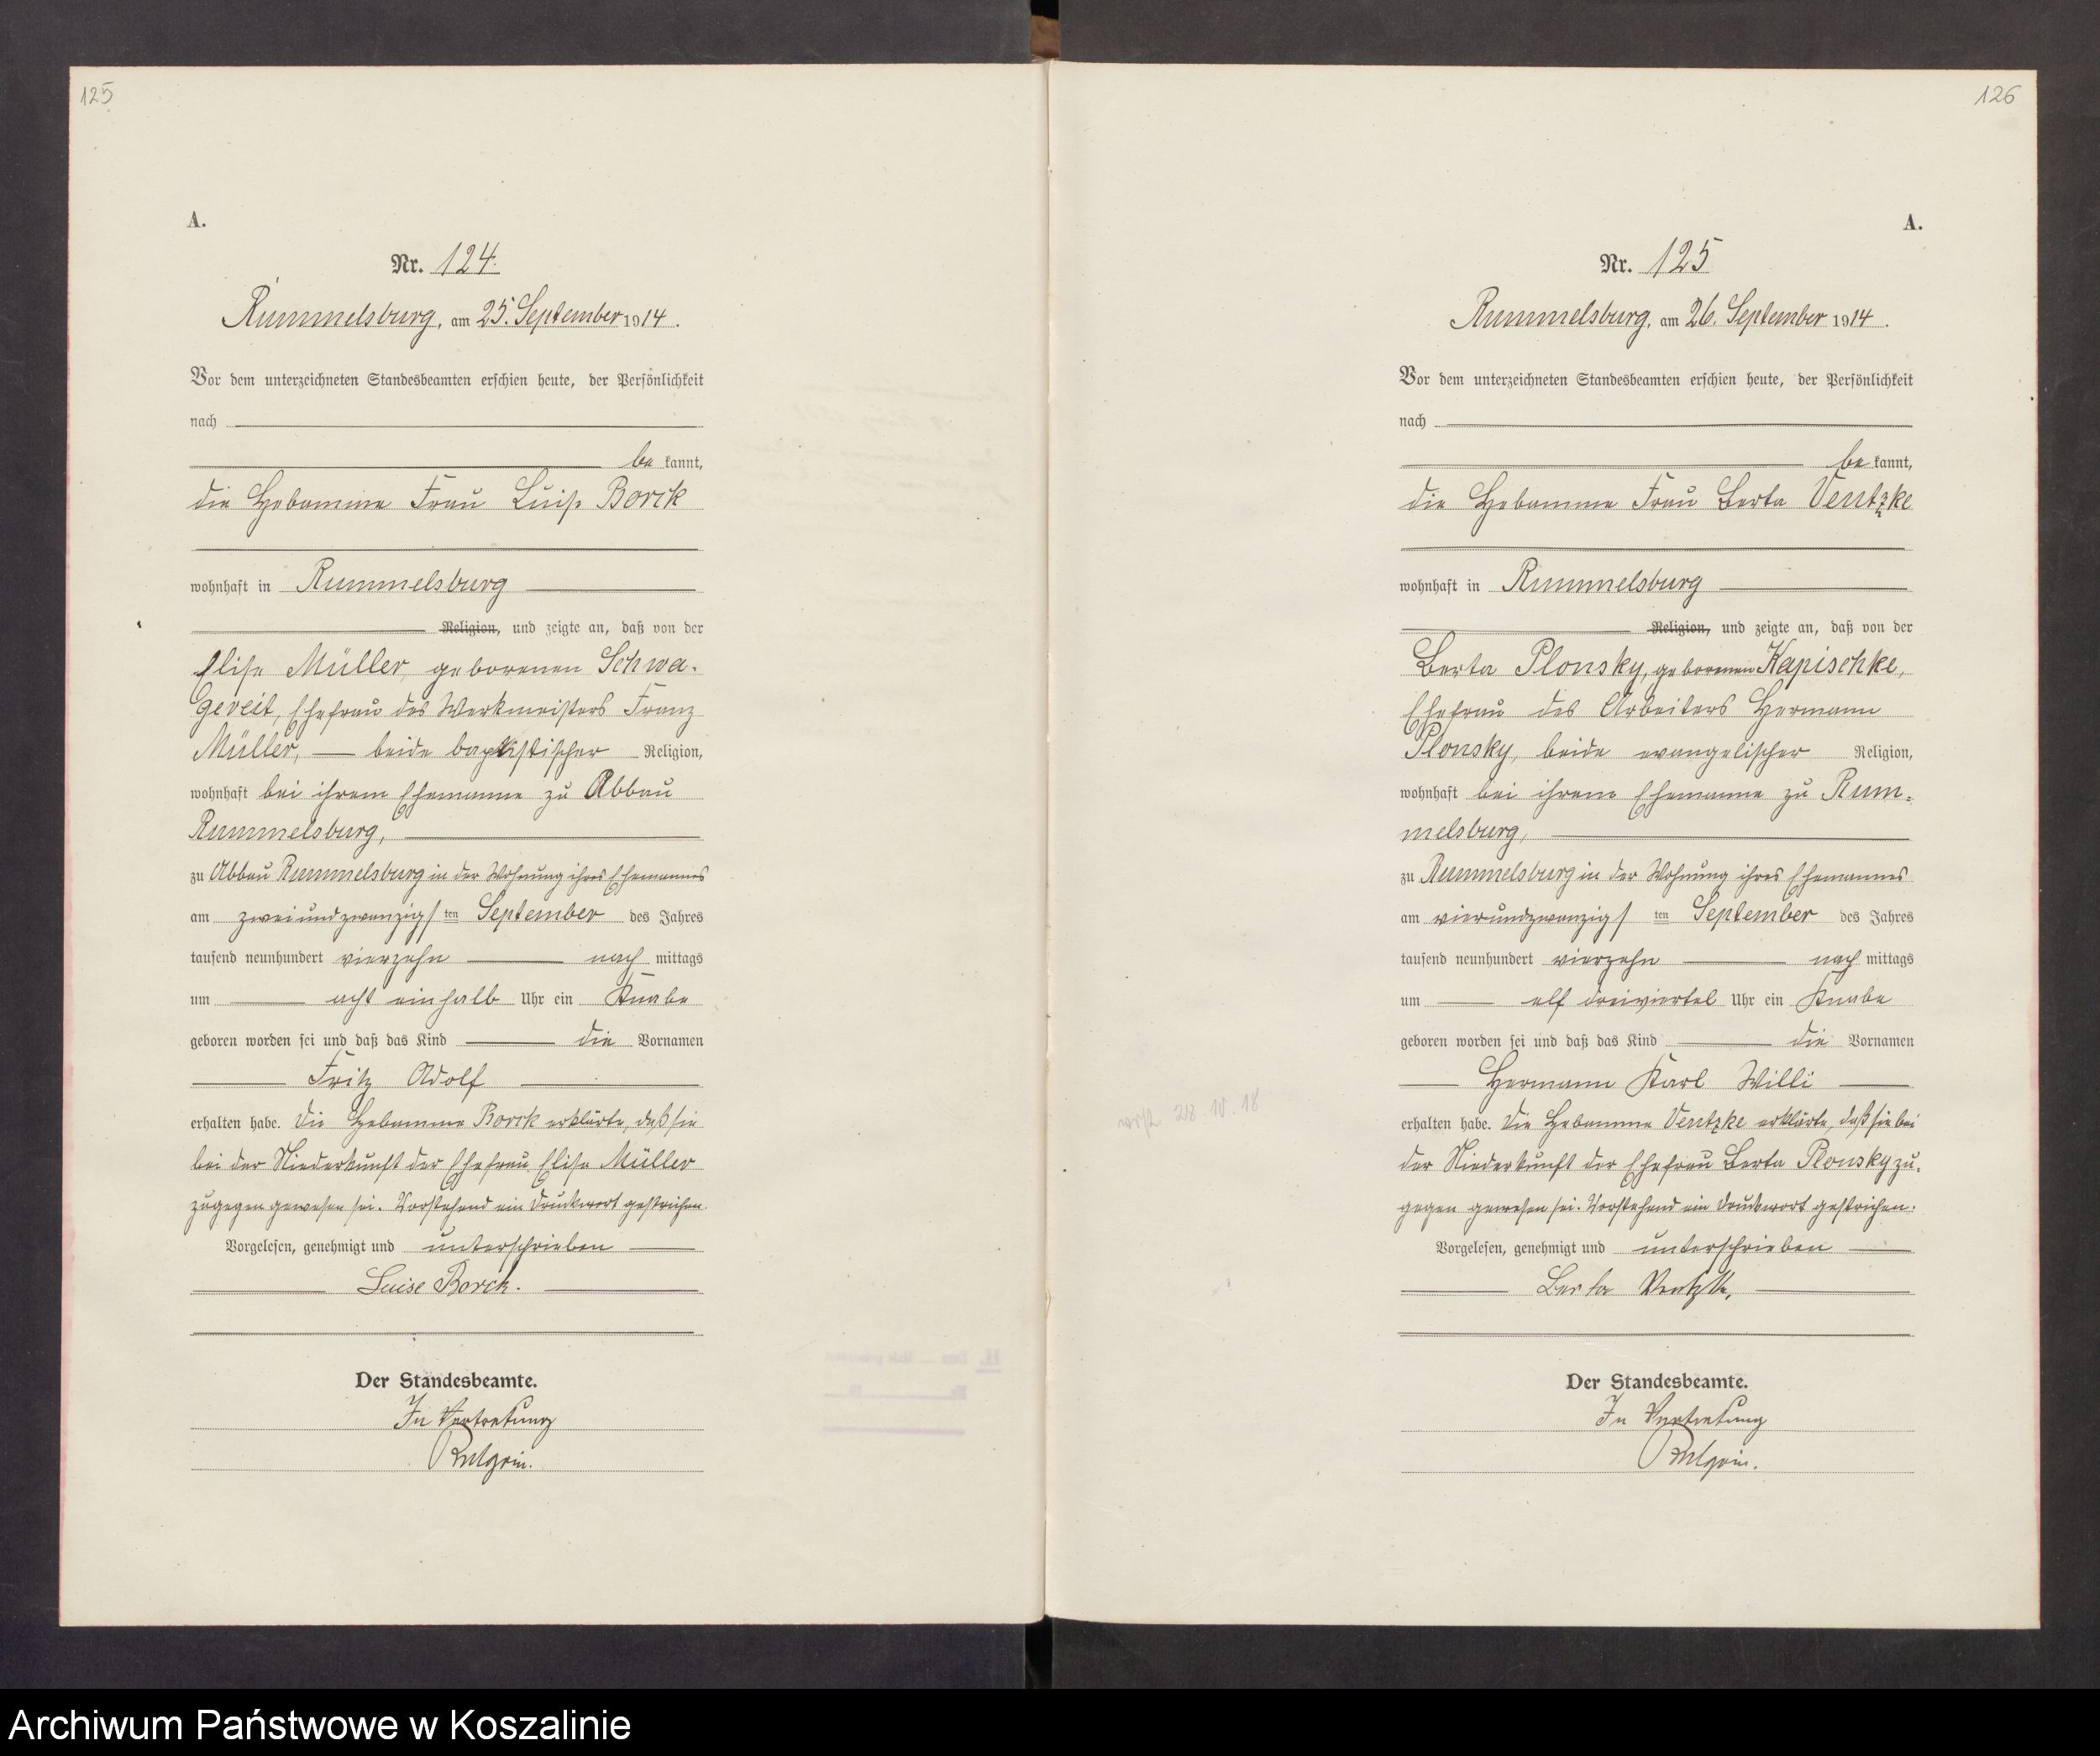 125
A.
Nr. 124.
Rummelsburg, am 25. September 1914.
Vor dem unterzeichneten Standesbeamten erschien heute, der Persönlichkeit
nach
be kannt,
die Hebamme Frau Luise Borck
wohnhaft in Rummelsburg
Religion, und zeigte an, daß von der
Elise Müller, geborenen Schwa-
gereit, Ehefrau des Werkmeisters Franz
Müller, beide baptistischer Religion,
wohnhaft bei ihrem Ehemanne zu Abbau
Rummelsburg,
zu Abbau Rummelsburg in der Wohnung ihres Ehemannes
am zweiundzwanzigsten September des Jahres
tausend neunhundert vierzehn nach mittags
um acht einhalb Uhr ein Knabe
geboren worden sei und daß das Kind die Vornamen
Fritz Adolf
erhalten habe. Die Hebamme Borck erklärte, daß sie
bei der Niederkunft der Ehefrau Elise Müller
zugegen gewesen sei. Vorstehend ein Druckwort gestrichen.
Vorgelesen, genehmigt und unterschrieben
Luise Borck.
Der Standesbeamte.
In Vertretung
126
A.
Nr. 125
Rummelsburg, am 26. September 1914.
Vor dem unterzeichneten Standesbeamten erschien heute, der Persönlichkeit
nach
be kannt,
die Hebamme Frau Berta Ventzke
wohnhaft in Rummelsburg
Religion, und zeigte an, daß von der
Berta Plonsky, geborenen Kapischke,
Ehefrau des Arbeiters Hermann
Plonsky, beide evangelischer Religion,
wohnhaft bei ihrem Ehemanne zu Rum-
melsburg,
zu Rummelsburg in der Wohnung ihres Ehemannes
am vierundzwanzigsten September des Jahres
tausend neunhundert vierzehn nach mittags
um elf dreiviertel Uhr ein Knabe
geboren worden sei und daß das Kind die Vornamen
Hermann Karl Willi
erhalten habe. Die Hebamme Ventzke erklärte, daß sie bei
der Niederkunft der Ehefrau Berta Plonsky zu-
gegen gewesen sei. Vorstehend ein Druckwort gestrichen.
Vorgelesen, genehmigt und unterschrieben
Berta Ventzke,
Der Standesbeamte.
In Vertretung
Archiwum Państwowe w Koszalinie